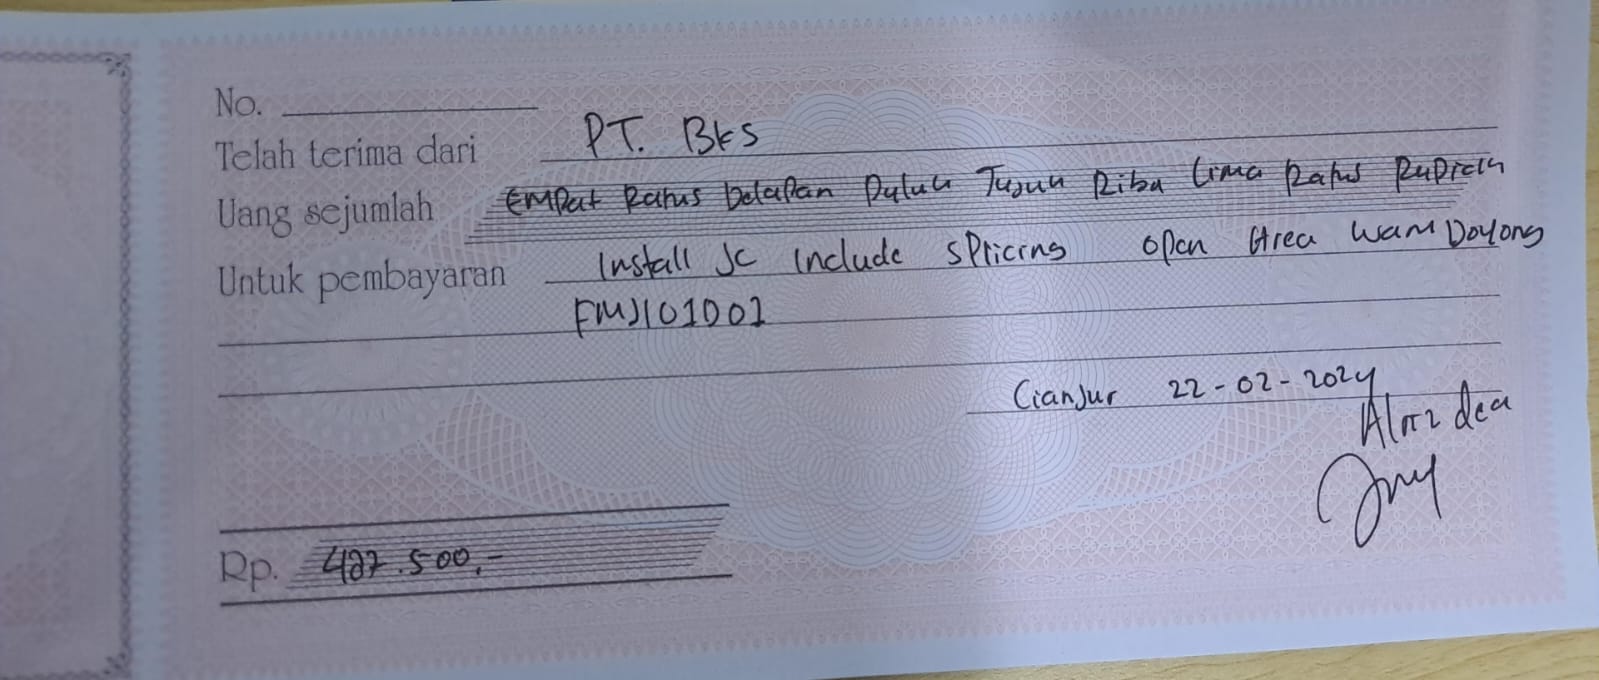 No.
Telah terima dari PT. BKS
Uang sejumlah Empat Ratus Delapan Puluh Tujuh Ribu Lima Ratus Rupiah
Untuk pembayaran Install JC Include Splicing Open Area Warudoyong
FMJ101D01
Cianjur 22-02-2024
Rp. 487.500,-